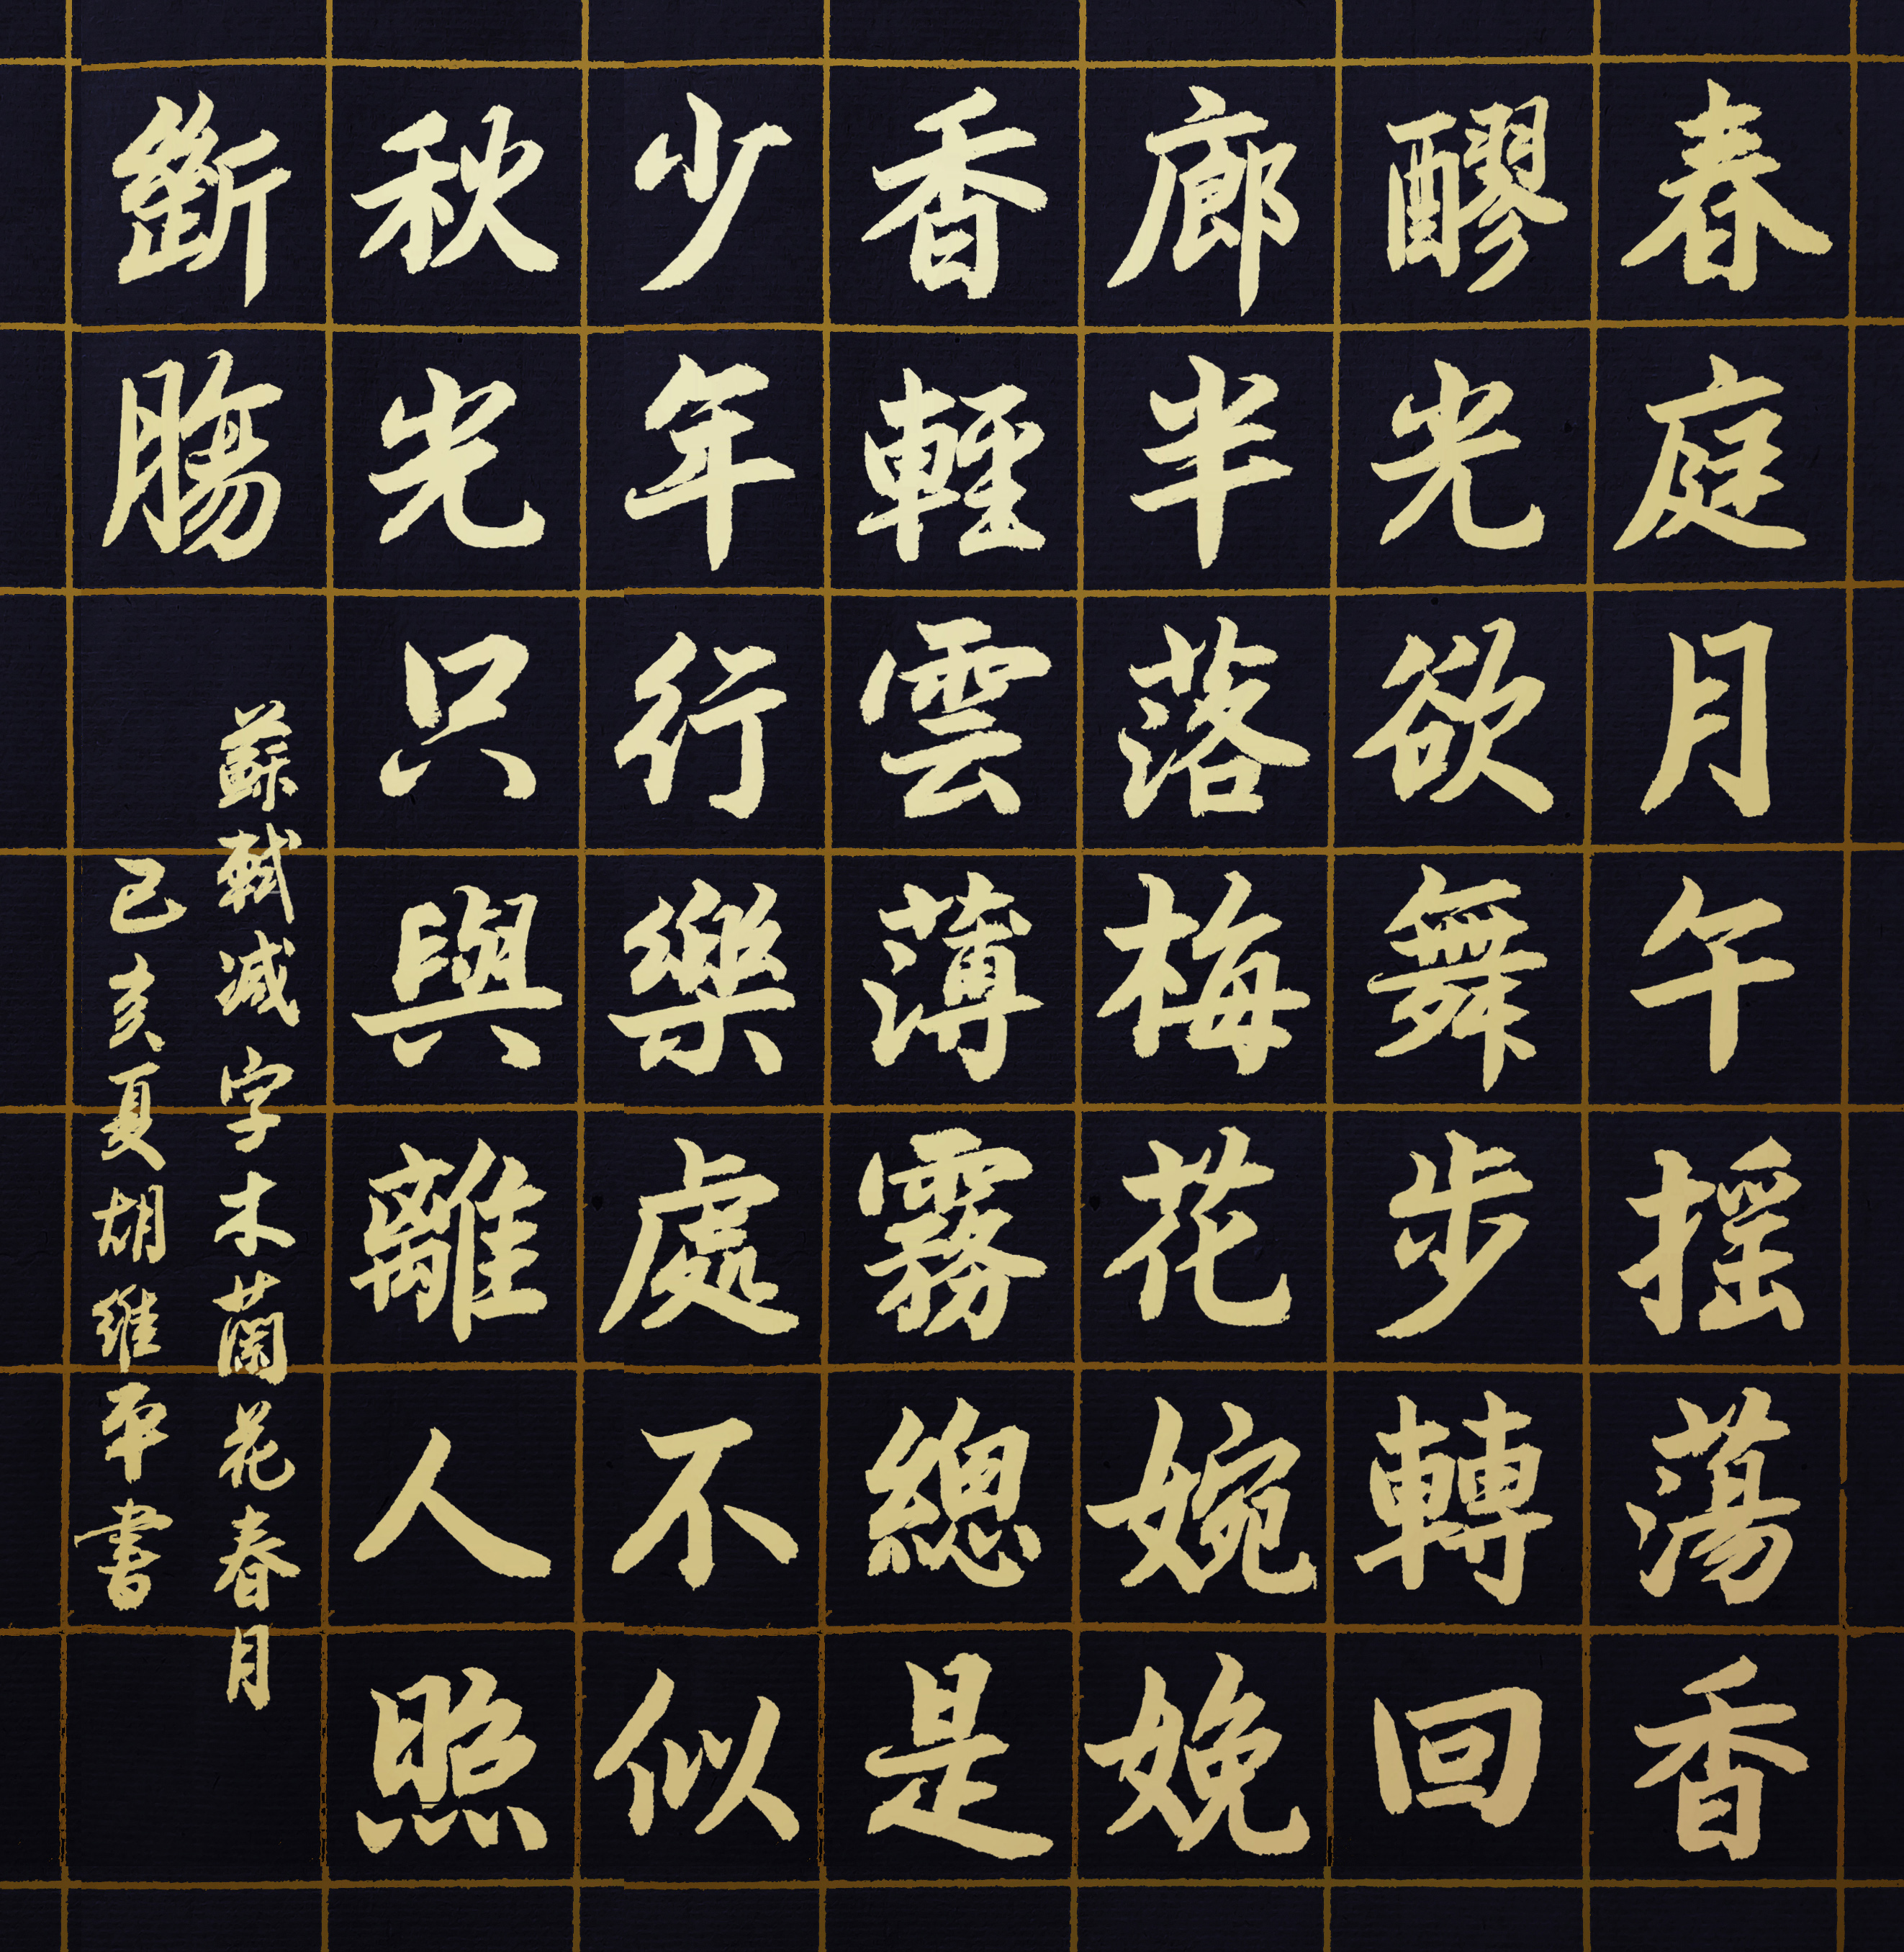 春庭月午摇蕩香
醪光欲舞步轉回
廊半落梅花婉娩
香輕雲薄霧總是
少年行樂處不似
秋光只與離人照
斷腸
蘇軾减字木蘭花春月
己亥夏胡維平書